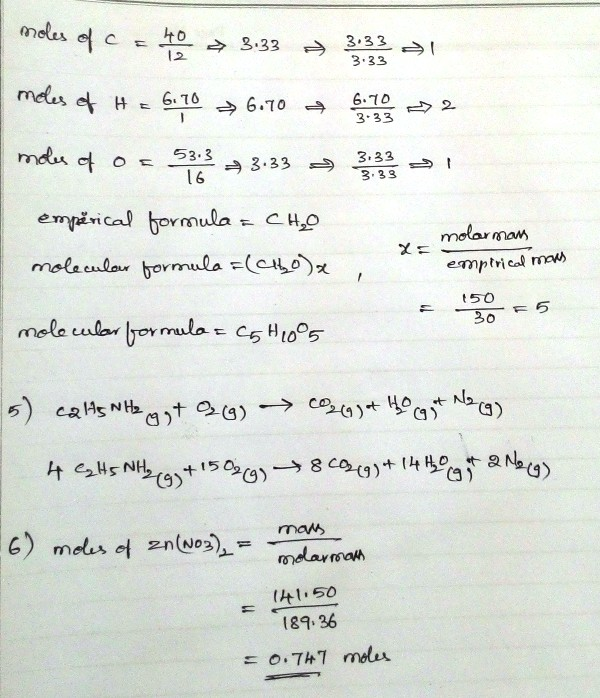 moles of C = 40/12 ⇒ 3.33 ⇒ 3.33/3.33 ⇒ 1
moles of H = 6.70/1 ⇒ 6.70 ⇒ 6.70/3.33 ⇒ 2
moles of O = 53.3/16 ⇒ 3.33 ⇒ 3.33/3.33 ⇒ 1
empirical formula = CH2O
molecular formula = (CH2O)x , x = molarmass/empirical mass
= 150/30 = 5
molecular formula = C5H10O5
5) C2H5NH2(g) + O2(g) → CO2(g) + H2O(g) + N2(g)
4 C2H5NH2(g) + 15O2(g) → 8 CO2(g) + 14 H2O(g) + 2 N2(g)
6) moles of Zn(NO3)2 = mass/molarmass
= 141.50/189.36
= 0.747 moles